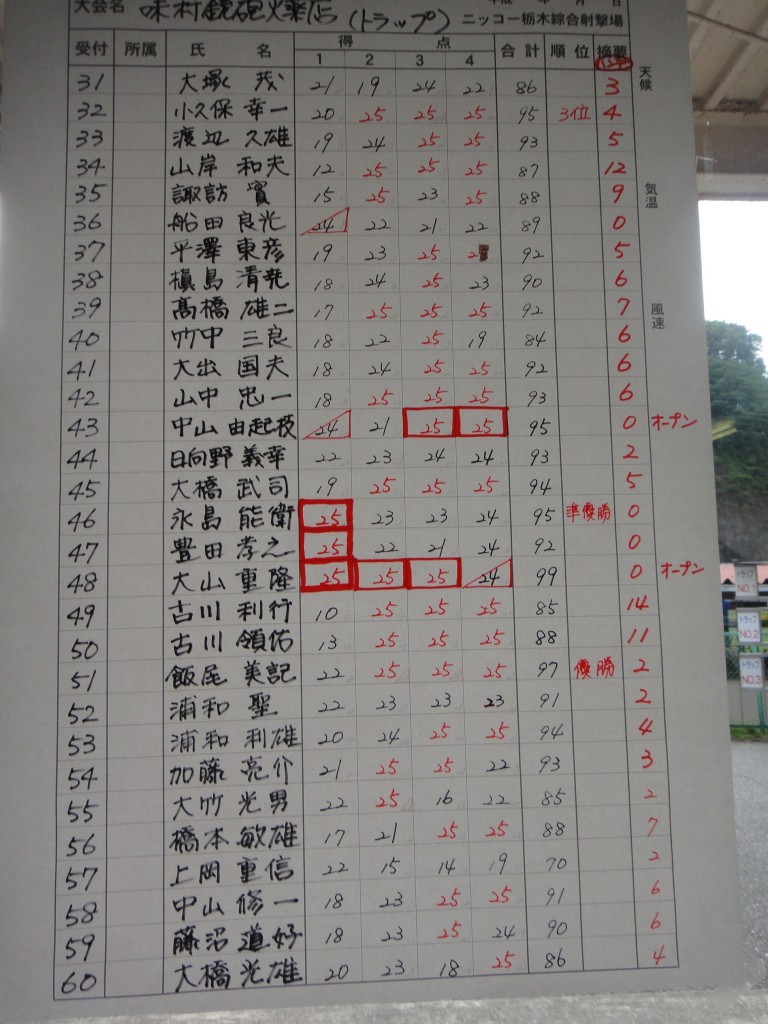 大会名 味村銃砲火薬店 (トラップ) ニッコー栃木綜合射撃場
受付 所属 氏名 得点 合計 順位 摘要
1 2 3 4
天候
31 大塚 茂 21 19 24 22 86 3
32 小久保 幸一 20 25 25 25 95 3位 4
33 渡辺 久雄 19 24 25 25 93 5
34 山岸 和夫 12 25 25 25 87 12
35 諏訪 實 15 25 23 25 88 9
気温
36 船田 良光 24 22 21 22 89 0
37 平澤 東彦 19 23 25 92 5
38 槇島 清尭 18 24 25 23 90 6
39 髙橋 雄二 17 25 25 25 92 7
風速
40 竹中 三良 18 22 25 19 84 6
41 大出 国夫 18 24 25 25 92 6
42 山中 忠一 18 25 25 25 93 6
43 中山 由起枝 24 21 25 25 95 0 オープン
44 日向野 義幸 22 23 24 24 93 2
45 大橋 武司 19 25 25 25 94 5
46 永島 能衛 25 23 23 24 95 準優勝 0
47 豊田 孝之 25 22 21 24 92 0
48 大山 重隆 25 25 25 24 99 0 オープン
49 古川 利行 10 25 25 25 85 14
50 古川 領佑 13 25 25 25 88 11
51 飯尾 美記 22 25 25 25 97 優勝 2
52 浦和 聖 22 23 23 23 91 2
53 浦和 利雄 20 24 25 25 94 4
54 加藤 亮介 21 25 25 22 93 3
55 大竹 光男 22 25 16 22 85 2
56 橋本 敏雄 17 21 25 25 88 7
57 上岡 重信 22 15 14 19 70 2
58 中山 修一 18 23 25 25 91 6
59 藤沼 道好 18 23 25 24 90 6
60 大橋 光雄 20 23 18 25 86 4
トラップ
NO.1
トラップ
NO.2
トラップ
NO.3